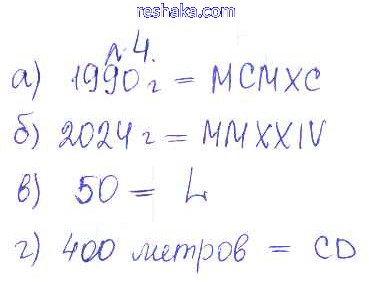 reshaka.com
№4.
а) 1990 г = MCMXC
б) 2024 г = MMXXIV
в) 50 = L
г) 400 метров = CD